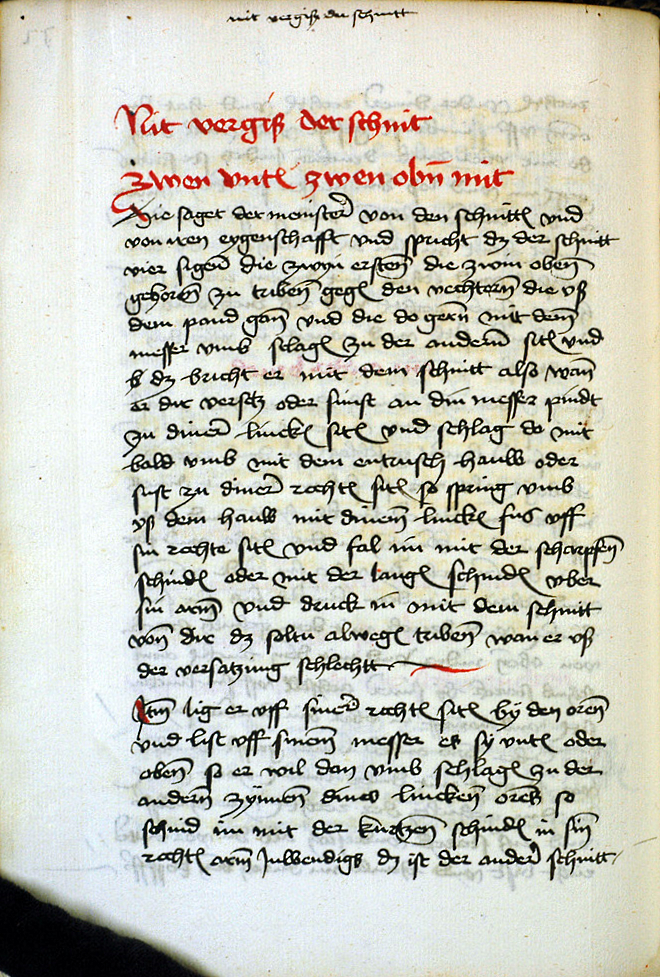 nit vergisß der schnitt
Nit vergiß der schnit
zwen vnten zwen oben mit
Hie saget der meinster von den schnitten vnd
von iren eygenschafft vnd spricht dz der schnitt
vier sigen die zwen ersten die zwen oben
gehoren zu triben gegen den vechtern die vß
dem pand gan vnd die do gern mit dem
messer vmb schlagen zu der andern siten vnd
dz bricht er mit dem schnitt also wan
er dir versetz oder sunst an din messer pindt
zu diner lincken siten vnd schlag do mit
bald vmb mit dem entrusch hauw oder
sust zu diner rechten siten so spring vmb
vß dem hauw mit dinem lincken fus vff
sin rechte siten vnd fal im mit der scharpfen
schinden oder mit der langen schinden vber
sin arm vnd druck in mit dem schnitt
von dir dz soltu alwegen triben wan er vß
der versatzung schlechtt
Item lig er vff siner rechten siten by den oren
vnd list vff sinem messer es sy vnten oder
oben so er wil dan vmb schlagen zu der
andern zymen dines lincken ores so
schnid im mit der kurtzen schinden in sin
rechten arm Inwendigs dz ist der ander schnitt